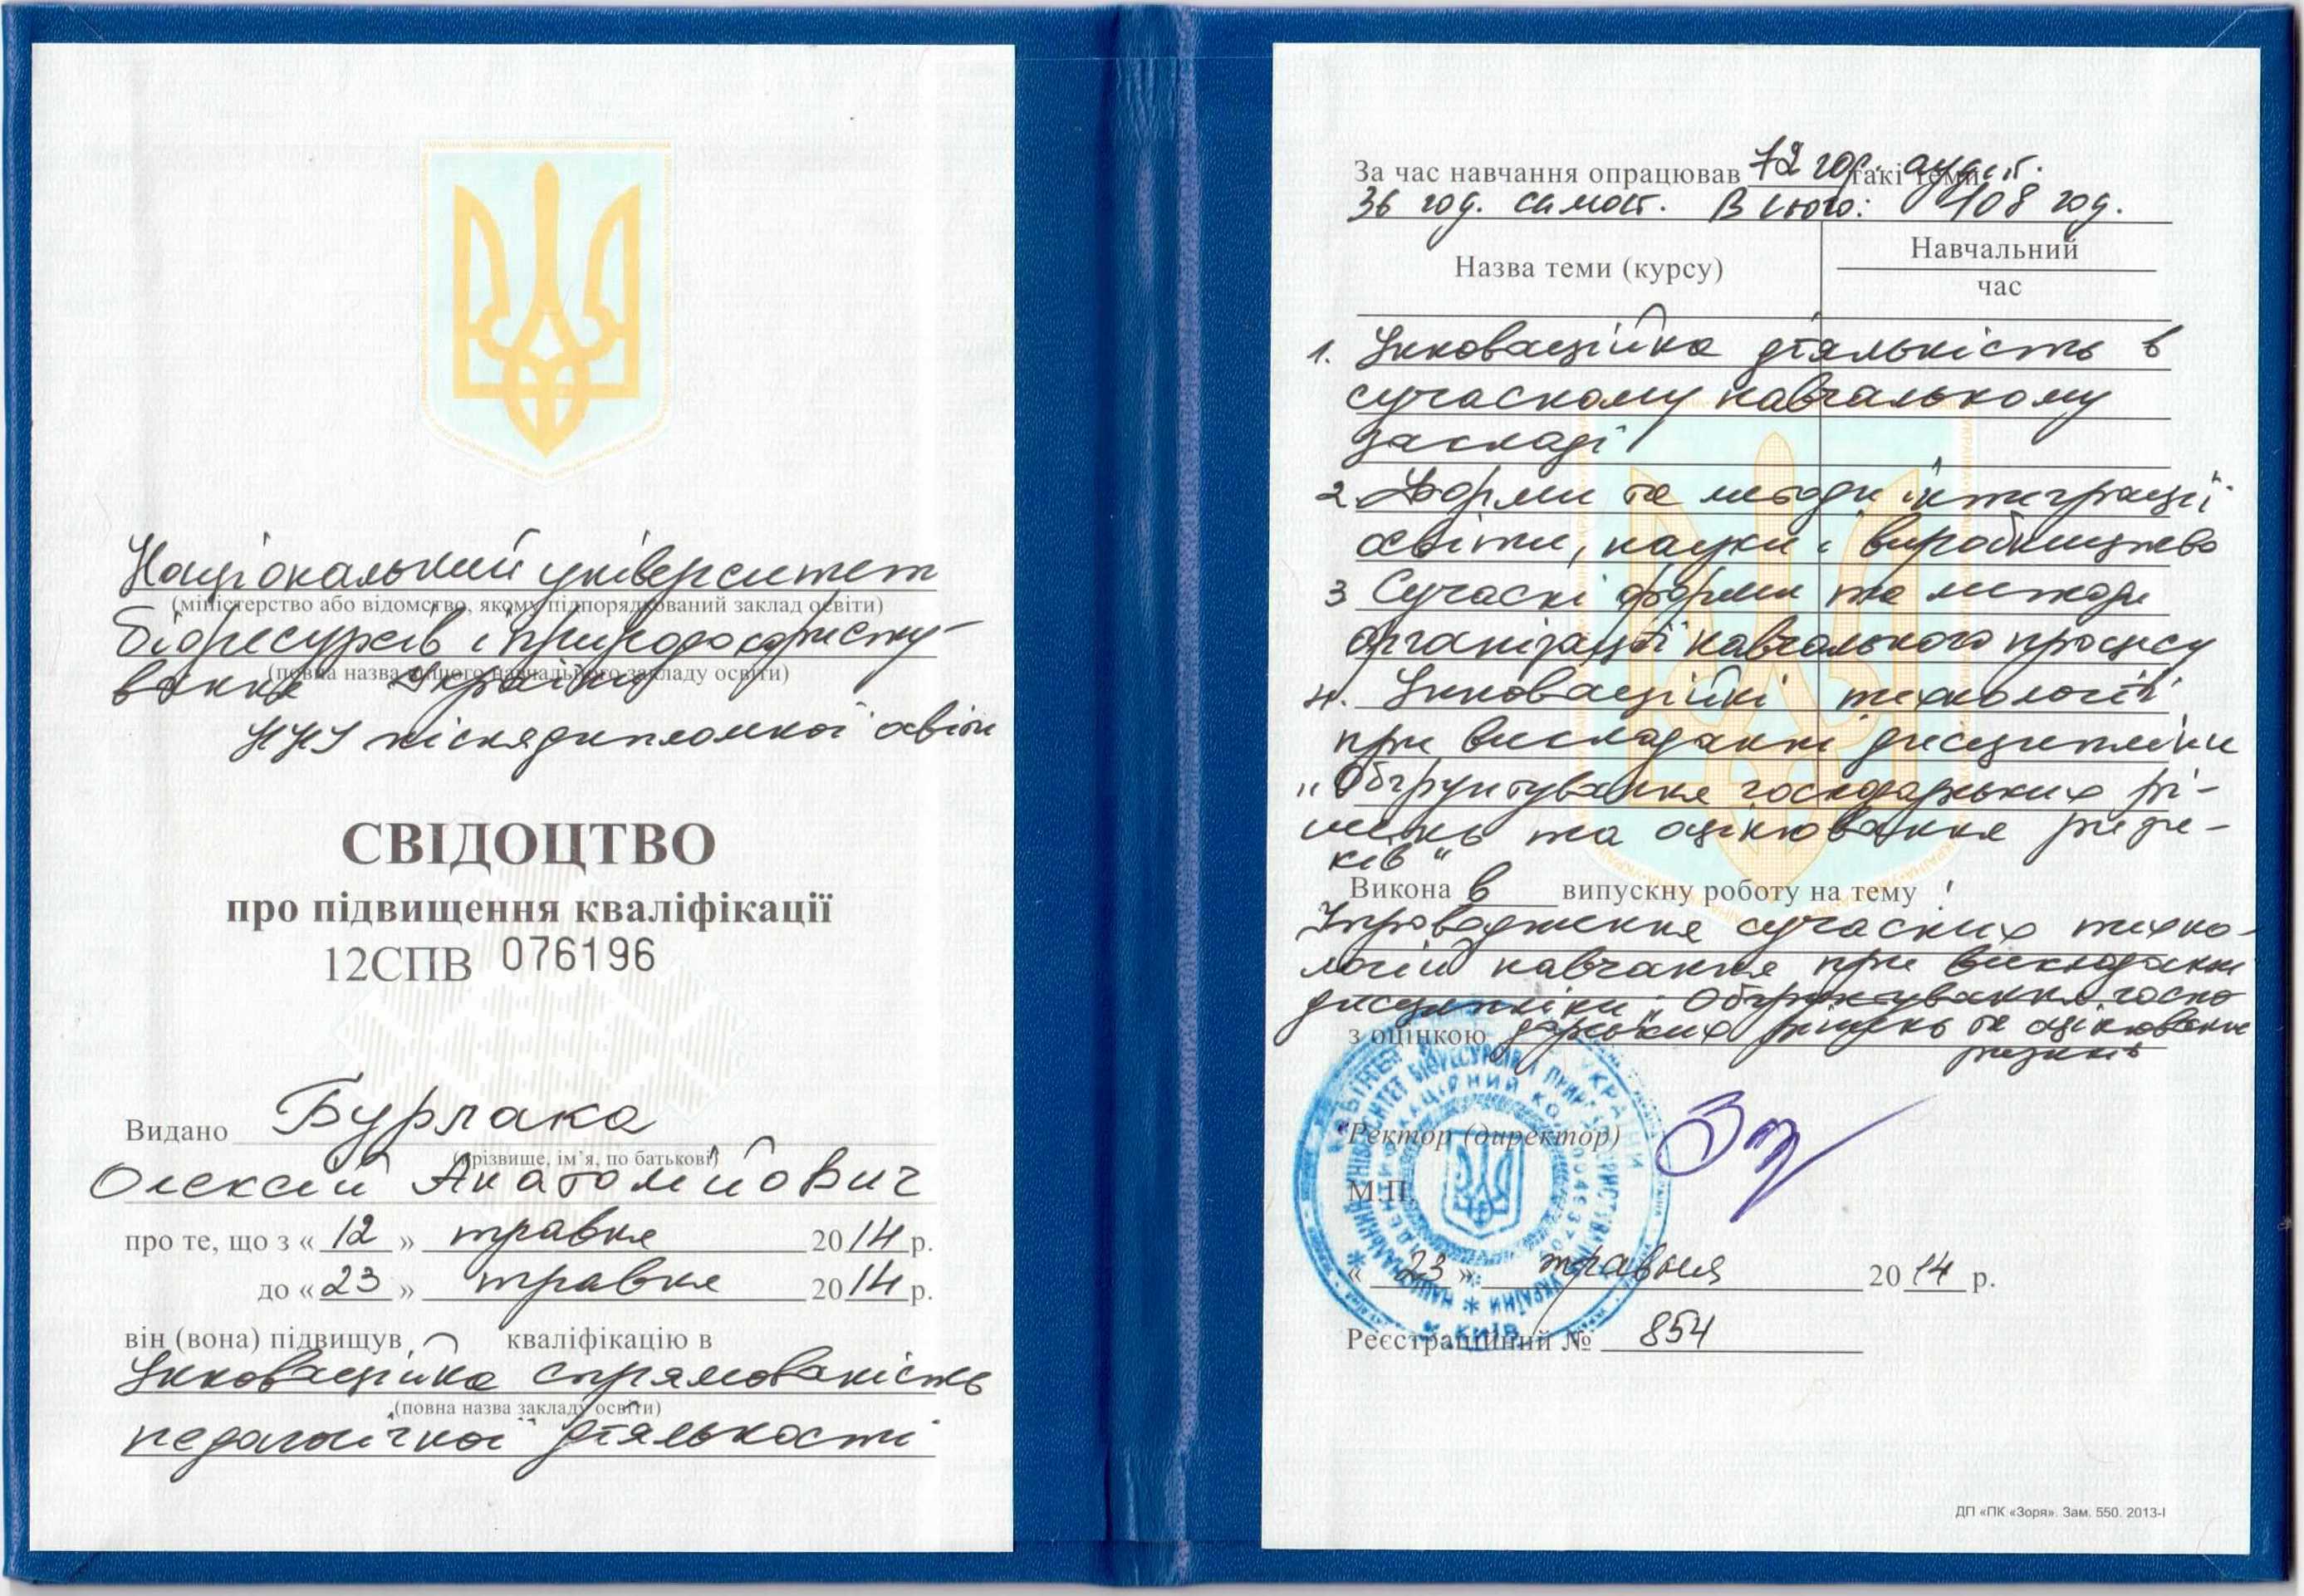 Національний університет
(міністерство або відомство, якому підпорядкований заклад освіти)
біоресурсів і природокористу-
(повна назва вищого навчального закладу освіти)
вання України
ННІ післядипломної освіти
СВІДОЦТВО
про підвищення кваліфікації
12СПВ 076196
Видано Бурлака
(прізвище, ім’я, по батькові)
Олексій Анатолійович
про те, що з « 12 » травня 2014 р.
до « 23 » травня 2014 р.
він (вона) підвищув кваліфікацію в
Інноваційна спрямованість
(повна назва закладу освіти)
педагогічної діяльності
За час навчання опрацював 72 год. аудит. такі теми
36 год. самост. Всього: 108 год.
Назва теми (курсу)
Навчальний
час
1. Інноваційна діяльність в
сучасному навчальному
закладі
2. Форми та методи інтеграції
освіти, науки і виробництва
3 Сучасні форми та методи
організації навчального процесу
4. Інноваційні технології
при викладанні дисципліни
„Обгрунтування господарських рі-
шень та оцінювання ризи-
ків“
Викона в випускну роботу на тему :
Упровадження сучасних техно-
логій навчання при викладанні
дисципліни „Обгрунтування госпо
з оцінкою дарських рішень та оцінювання
ризиків
Ректор (директор)
М.П.
« 23 » травня 2014 р.
Реєстраційний № 854
НАЦІОНАЛЬНИЙ УНІВЕРСИТЕТ БІОРЕСУРСІВ І ПРИРОДОКОРИСТУВАННЯ УКРАЇНИ
ІДЕНТИФІКАЦІЙНИЙ КОД 00493706
КИЇВ
ДП «ПК «Зоря». Зам. 550. 2013-І